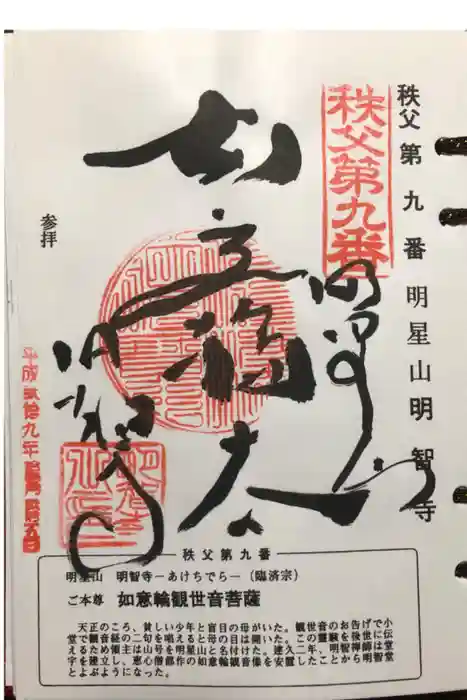 秩父第九番 明星山明智寺
秩父第九番
如意輪大
明星山
明智寺
参拝
秩父第九番
明星山 明智寺―あけちでら―(臨済宗)
ご本尊 如意輪観世音菩薩
天正のころ、貧しい少年と盲目の母がいた。観世音のお告げで小
堂で観音経の二句を唱えると母の目は開いた。この霊験を後世に伝
えるため領主は山号を明星山と名付けた。建久二年、明智禅師は堂
宇を建立し、恵心僧都作の如意輪観音像を安置したことから明智寺
とよぶようになった。